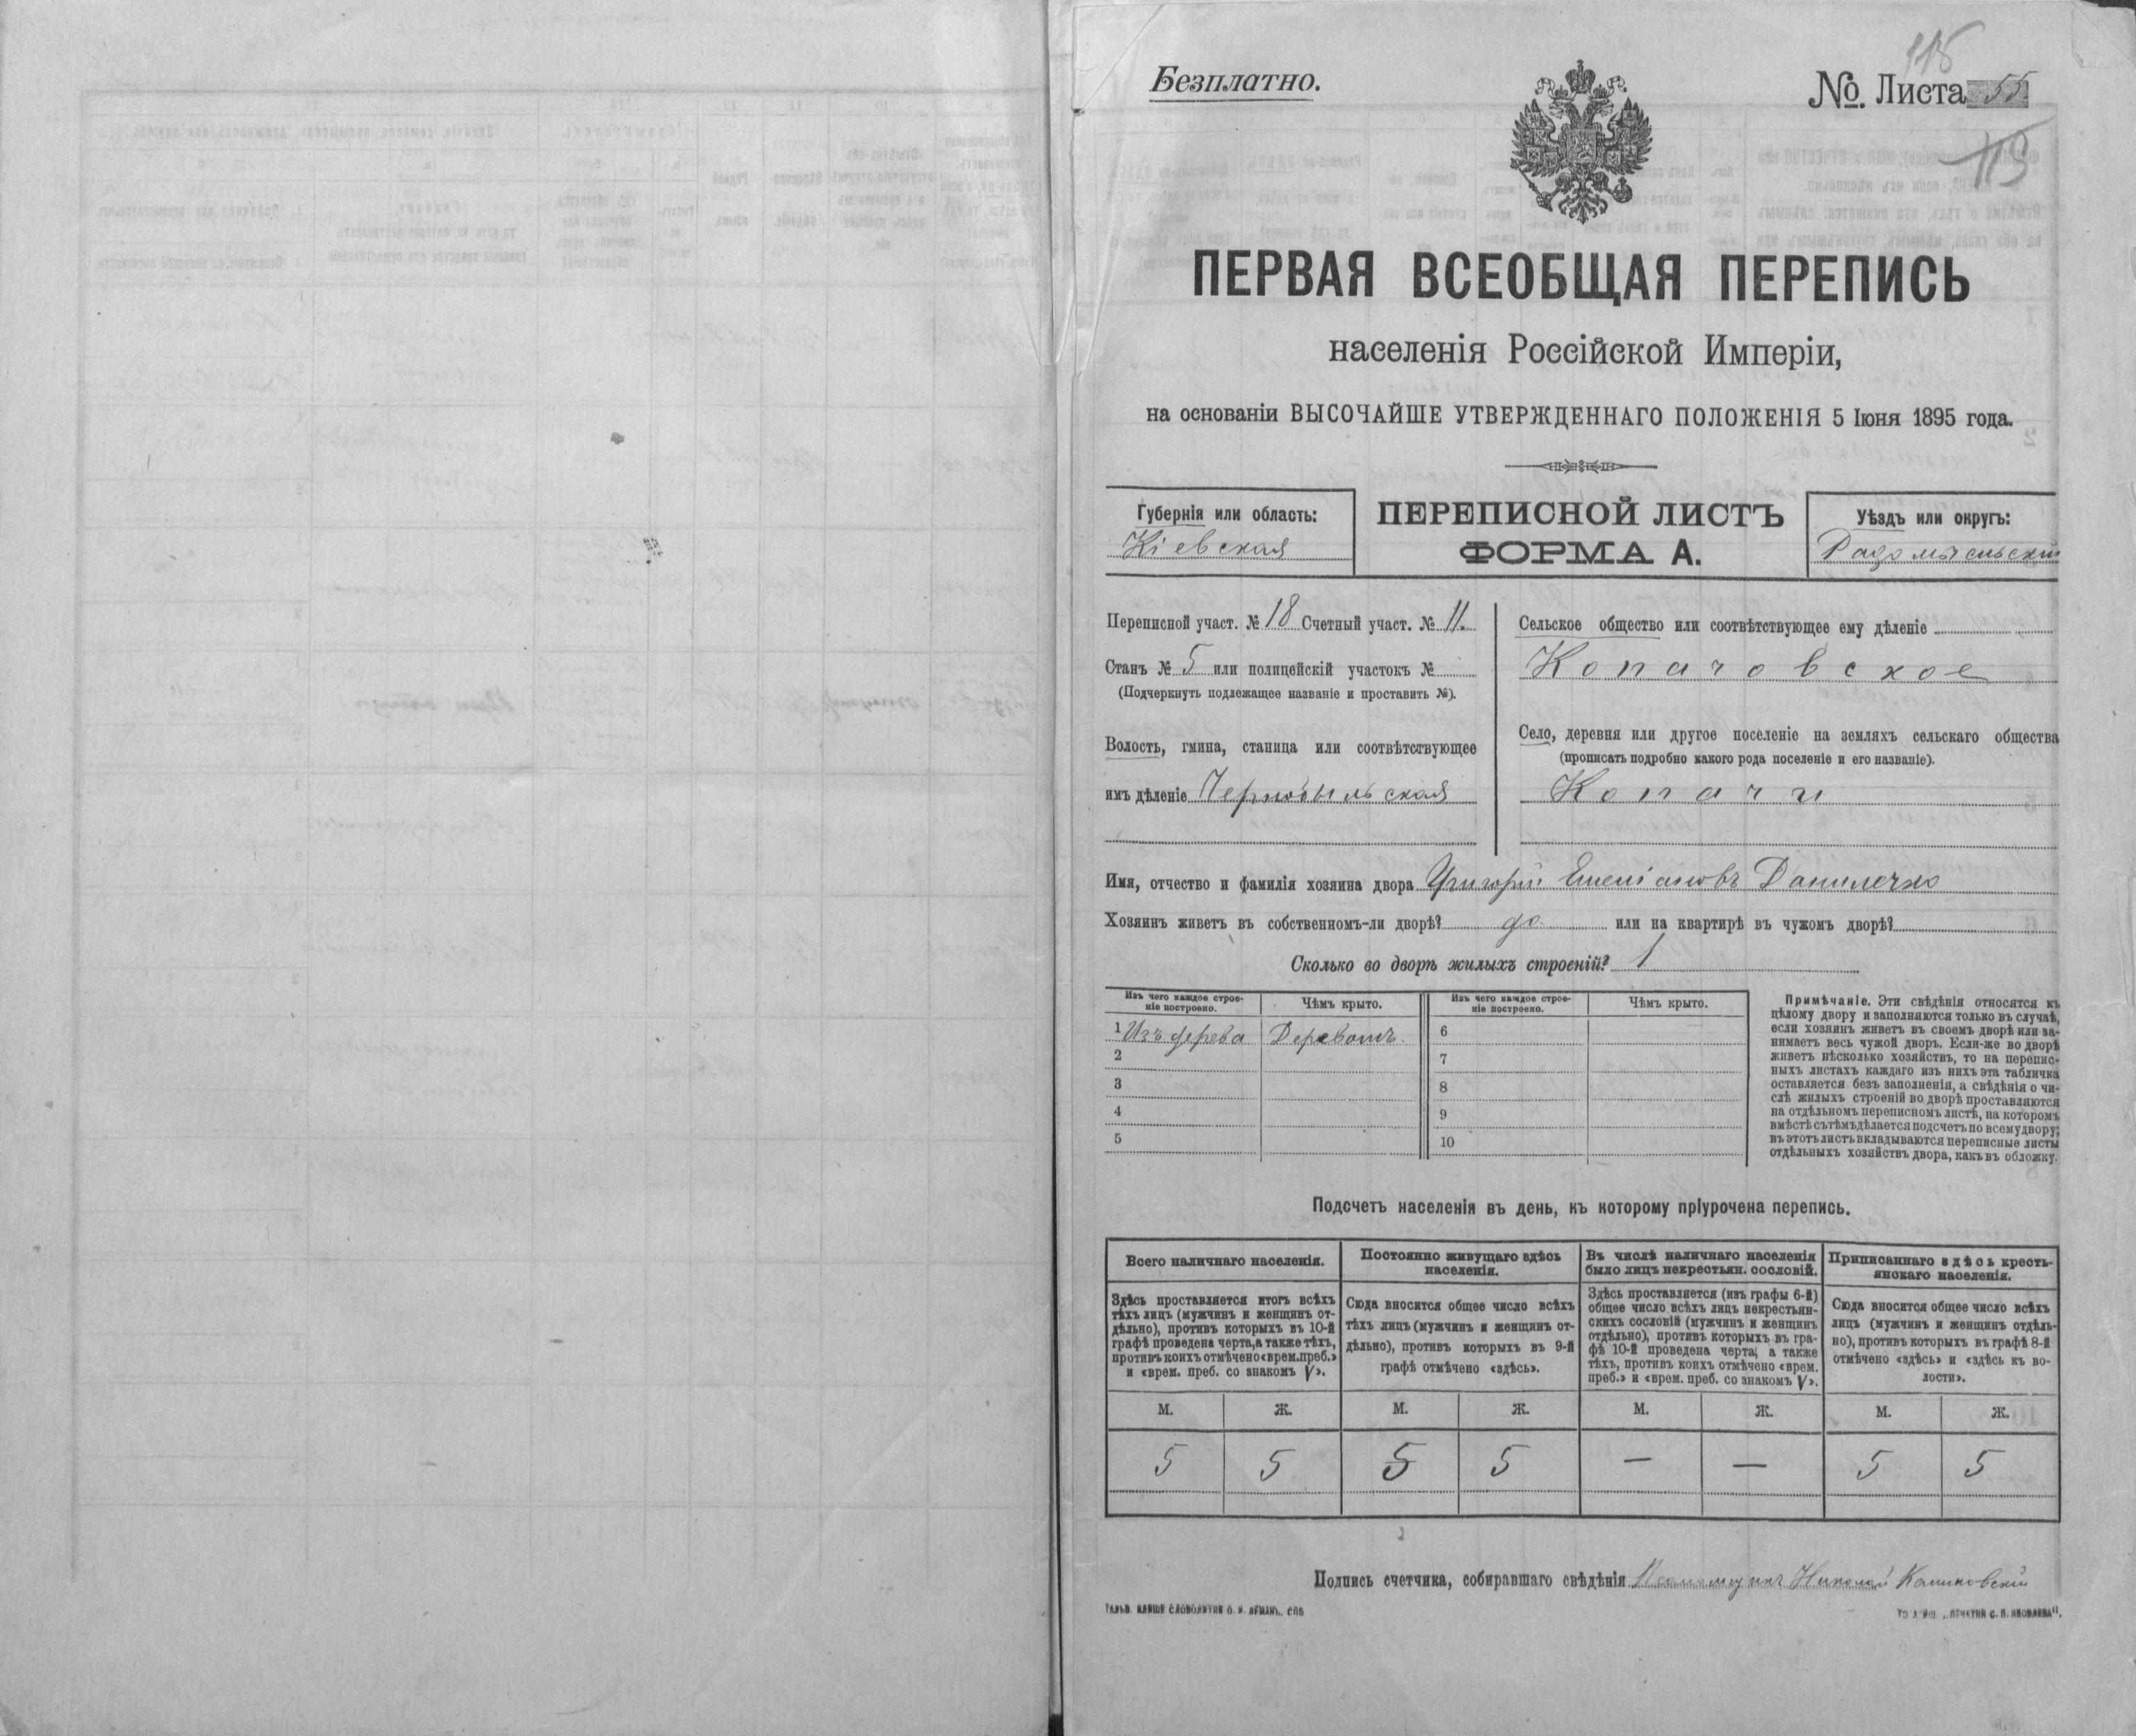 115
Безплатно.
№ Листа 55
113
ПЕРВАЯ ВСЕОБЩАЯ ПЕРЕПИСЬ
населенія Россійской Имперіи,
на основаніи ВЫСОЧАЙШЕ УТВЕРЖДЕННАГО ПОЛОЖЕНІЯ 5 Іюня 1895 года.
Губернія или область:
Кіевская
ПЕРЕПИСНОЙ ЛИСТЪ
ФОРМА А.
Уѣздъ или округъ:
Радомысльскій
Переписной участ. № 18 Счетный участ. № 11.
Станъ № 5 или полицейскій участокъ №
(Подчеркнуть подлежащее названіе и проставить №).
Волость, гмина, станица или соотвѣтствующее
имъ дѣленіе Чернобыльская
Сельское общество или соотвѣтствующее ему дѣленіе
Копачовское
Село, деревня или другое поселеніе на земляхъ сельскаго общества
(прописать подробно какого рода поселеніе и его названіе).
Копачи
Имя, отчество и фамилія хозяина двора Григорій Емеліановъ Данилечко
Хозяинъ живетъ въ собственномъ-ли дворѣ? да или на квартирѣ въ чужомъ дворѣ?
Сколько во дворѣ жилыхъ строеній? 1
Изъ чего каждое строе-
ніе построено.
Чѣмъ крыто.
Изъ чего каждое строе-
ніе построено.
Чѣмъ крыто.
1 Изъ дерева Деревомъ. 6
2 7
3 8
4 9
5 10
Примѣчаніе. Эти свѣдѣнія относятся къ
цѣлому двору и заполняются только въ случаѣ,
если хозяинъ живетъ въ своемъ дворѣ или за-
нимаетъ весь чужой дворъ. Если-же во дворѣ
живетъ нѣсколько хозяйствъ, то на перепис-
ныхъ листахъ каждаго изъ нихъ эта табличка
оставляется безъ заполненія, а свѣдѣнія о чи-
слѣ жилыхъ строеній во дворѣ проставляются
на отдѣльномъ переписномъ листѣ, на которомъ
вмѣстѣ съ тѣмъ дѣлается подсчетъ по всему двору;
въ этотъ листъ вкладываются переписные листы
отдѣльныхъ хозяйствъ двора, какъ въ обложку.
Подсчетъ населенія въ день, къ которому пріурочена перепись.
Всего наличнаго населенія.
Здѣсь проставляется итогъ всѣхъ
тѣхъ лицъ (мужчинъ и женщинъ от-
дѣльно), противъ которыхъ въ 10-й
графѣ проведена черта, а также тѣхъ,
противъ коихъ отмѣчено «врем. преб.»
и «врем. преб. со знакомъ V».
Постоянно живущаго здѣсь
населенія.
Сюда вносится общее число всѣхъ
тѣхъ лицъ (мужчинъ и женщинъ от-
дѣльно), противъ которыхъ въ 9-й
графѣ отмѣчено «здѣсь».
Въ числѣ наличнаго населенія
было лицъ некрестьян. сословій.
Здѣсь проставляется (изъ графы 6-й)
общее число всѣхъ лицъ некрестьян-
скихъ сословій (мужчинъ и женщинъ
отдѣльно), противъ которыхъ въ гра-
фѣ 10-й проведена черта, а также
тѣхъ, противъ коихъ отмѣчено «врем.
преб.» и «врем. преб. со знакомъ V».
Приписаннаго здѣсь кресть-
янскаго населенія.
Сюда вносится общее число всѣхъ
лицъ (мужчинъ и женщинъ отдѣль-
но), противъ которыхъ въ графѣ 8-й
отмѣчено «здѣсь» и «здѣсь къ во-
лости».
М. Ж. М. Ж. М. Ж. М. Ж.
5 5 5 5 — — 5 5
Подпись счетчика, собиравшаго свѣдѣнія Псаломщикъ Николай Калиновскій